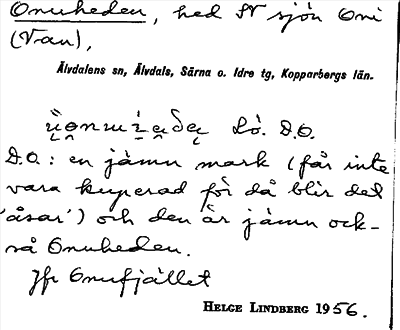 Onuheden, hed N sjön Oni
(Van),
Älvdalens sn, Älvdals, Särna o. Idre tg, Kopparbergs län.
Lò. D.O.
D.O.: en jämn mark (får inte
vara kuperad för då blir det
'åsar') och den är jämn ock-
så Onuheden.
Jfr Onufjället
HELGE LINDBERG 1956.